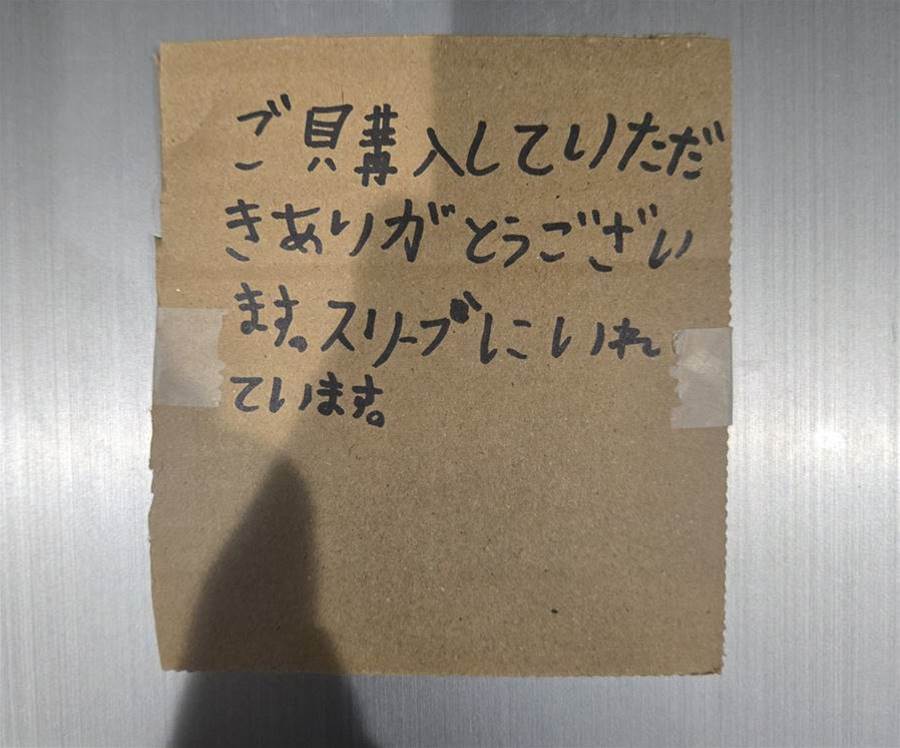 ご購入していただ
きありがとうござい
ます。スリーブにいれ
ています。